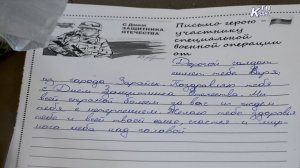 С Днём
ЗАЩИТНИКА
ОТЕЧЕСТВА
Письмо герою –
участнику
специальной
военной операции
от
Дорогой солдат
пишет тебе Варя,
из города Зарайск. Поздравляю тебя
с Днём Защитника Отечества. Мы
всей страной болеем за вас и ждём
тебя с Желаю тебе здоровья
тебе и всей твоей семье, счастья и мирного
неба над головой.